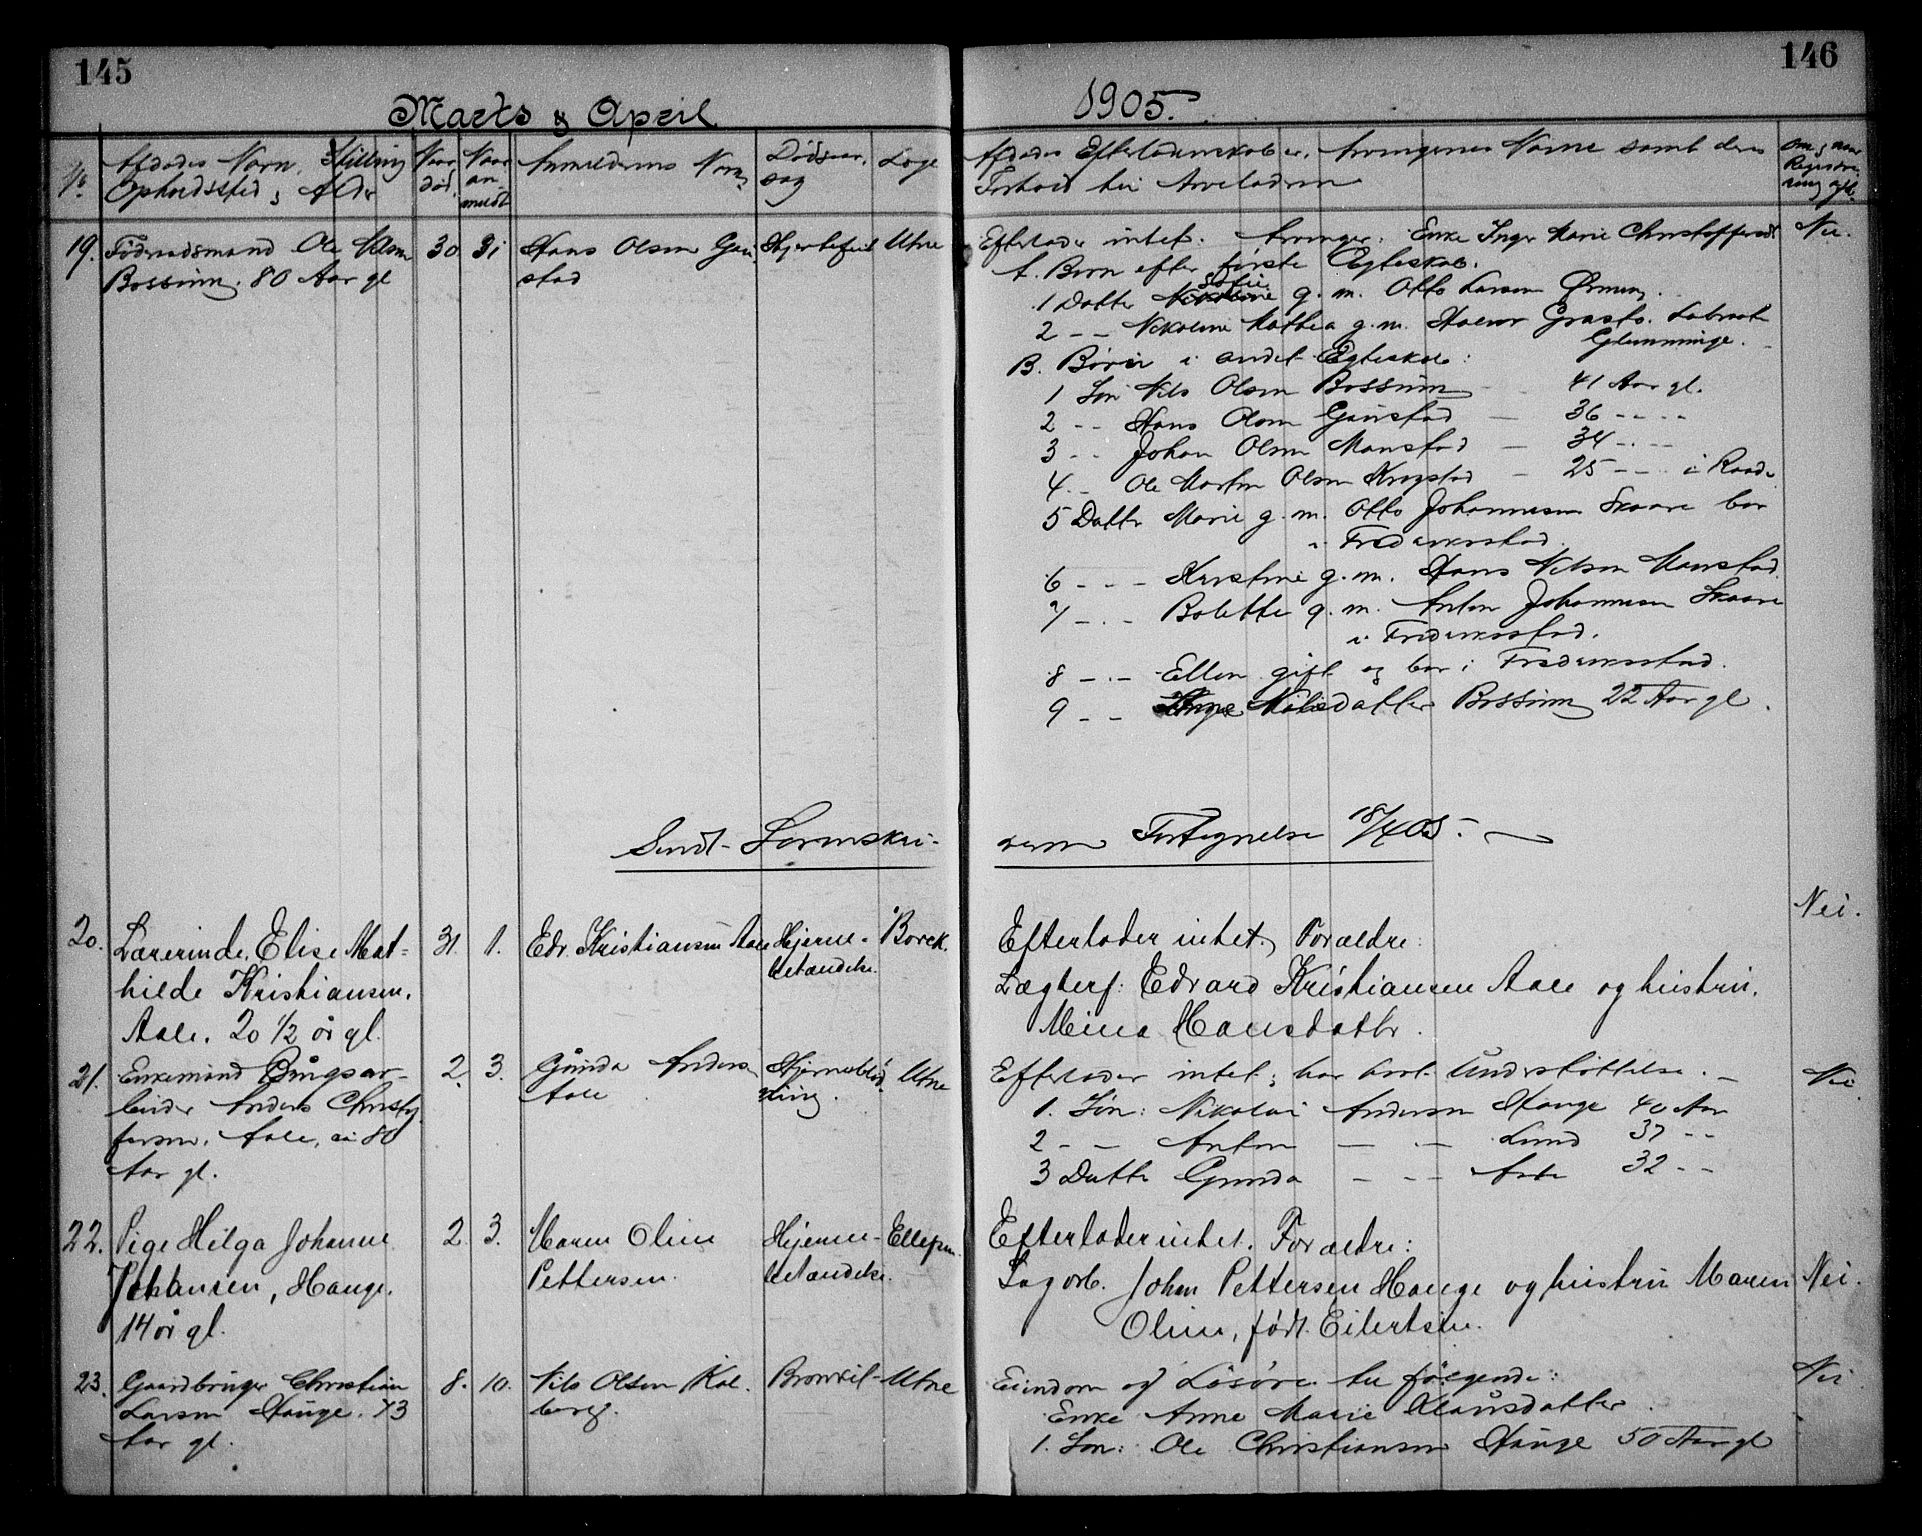 145
146
Marts & April
1905.
No
Afdødes Navn, Stilling
Opholdssted & Alder
Naar
død
Naar
an-
meldt
Anmelderens Navn
Dødsaar-
sag
Læge
Afdødes Efterladenskaber, Arvingernes Navne samt deres
Forhold til Arveladeren
Om & naar
Registre-
ring
19. Föderaadsmand Ole Nilsen
Bossum. 80 Aar gl
30 31
Hans Olsen Gau-
stad
Hjertefeil
Utne
Efterlader intet. Arvinger: Enke Inger Marie Christoffersdt
Nei.
A. Børn efter første Ægteskab.
1 Datter Sofie g. m. Otto Larsen
2 - - Nikoline Mathea g. m.
Glemminge.
B. Børn i andet Ægteskab:
1 Søn Nils Olsen Bossum - 41 Aar gl.
2 - - Hans Olsen Gaustad - 36 - - - -
3 - - Johan Olsen Monstad - 34 - - - -
4 - - Ole Martin Olsen Krogstad - 25 - - i Raade
5 Datter Marie g. m. Otto Johannesen Skaare bor
i Frederiksstad.
6 - - - Kristine g. m. Hans Nilsen Monstad
7 - - - Bolette g. m. Anton Johannesen Skaare
i Frederiksstad.
8 - - - Ellen gift og bor i Frederiksstad.
9 - - Bossum 22 Aar gl.
Sendt Sorenskri-
veren Fortegnelse 18/4 05.
20. Lærerinde Elise Mat-
hilde Kristiansen.
Aale. 20 1/2 år gl.
31. 1.
Edv. Kristiansen Aale
Hjerne-
betændelse.
Borck.
Efterlader intet. Forældre:
Nei.
Lægterf: Edvard Kristiansen Aale og hustru.
Mina Hansdatter.
21. Enkemand
Anders Christof-
fersen. Aale, ca 80
Aar gl.
2. 3.
Gunda Anders
Aale
Hjerneblød-
ning.
Utne
Efterlader intet; har havt Understöttelse. -
Nei
1. Søn: Nikolai Andersen Hauge 40 Aar
2 - - Anton - - - Lund 37 - -
3 Datter Gunda - - - 32 - -
22. Pige Helga Johanne
Johansen, Hauge.
14 år gl.
2. 3.
Maren Oline
Pettersen.
Hjerne-
betændelse.
Efterlader intet. Forældre:
Sagarb. Johan Pettersen Hauge og hustru Maren
Nei.
Oline, født Eilertsen.
23. Gaardbruger Christian
Larsen Hauge. 73
Aar gl.
8. 10.
Nils Olsen Kol-
berg.
Utne
Eiendom og Løsøre til følgende:
Nei
Enke Anne Marie Klausdatter.
1. Søn: Ole Christiansen Hauge 50 Aar gl